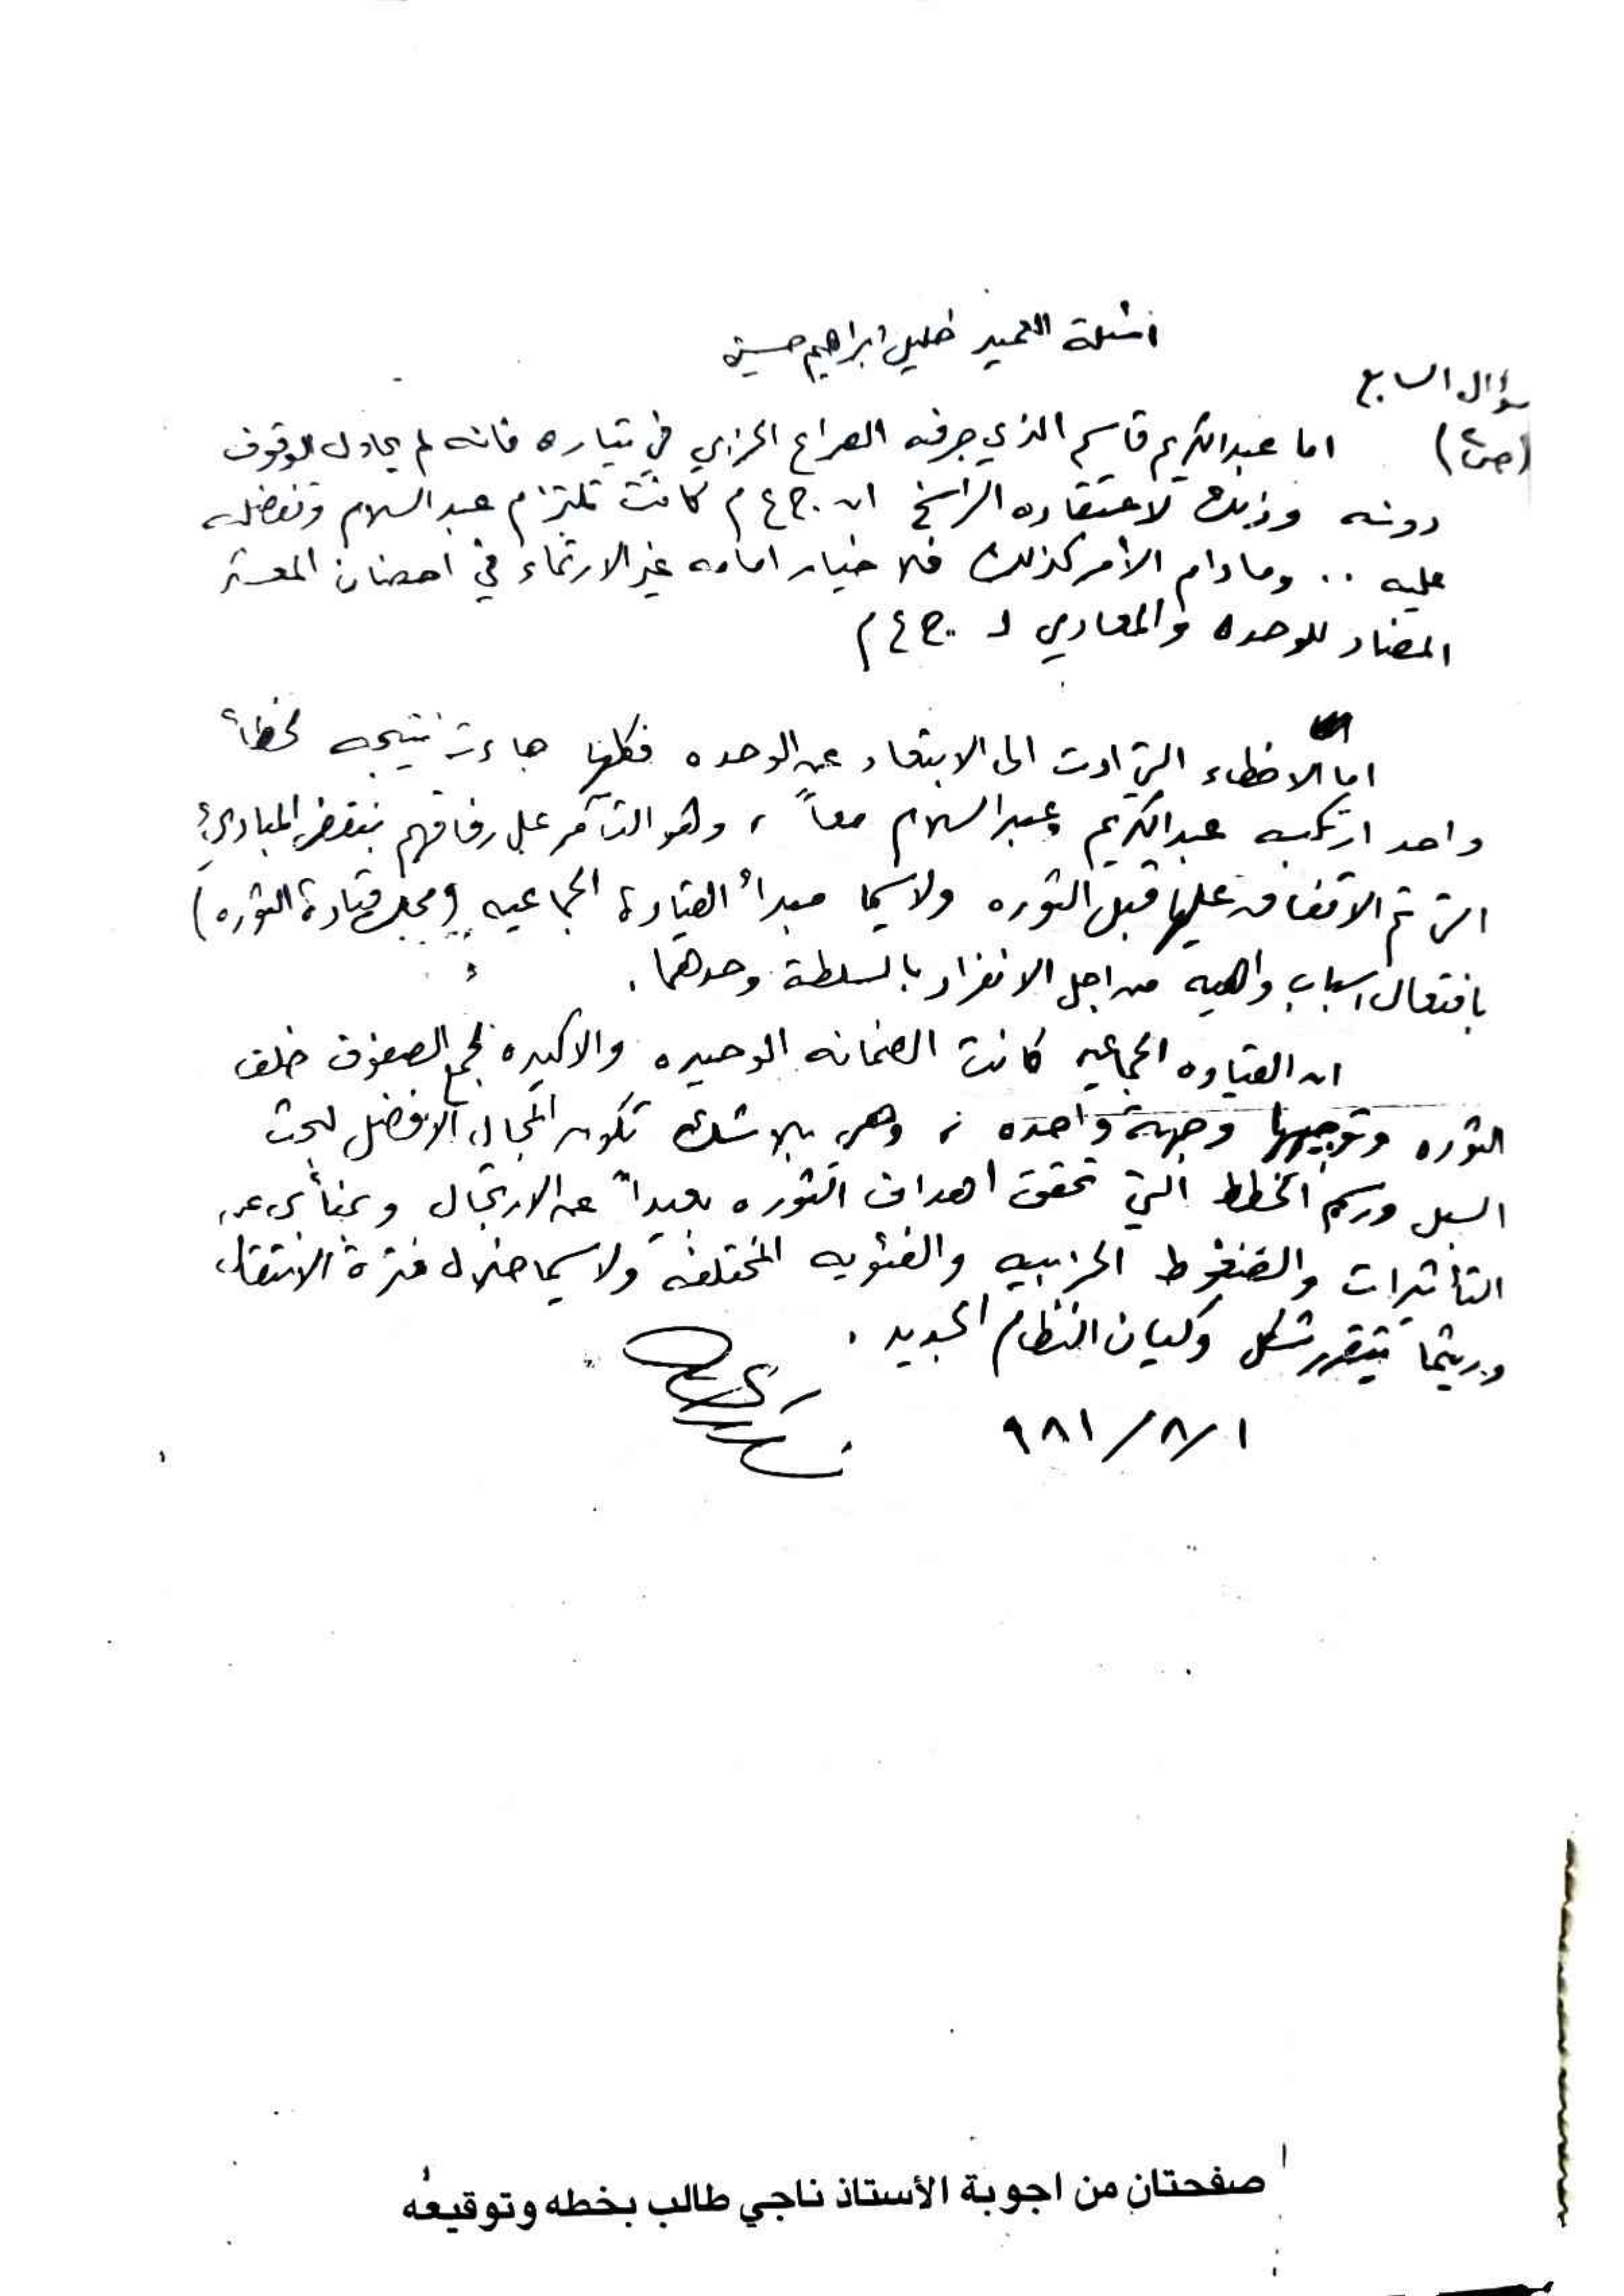 اسئلة العميد خليل ابراهيم حسين
سؤال السابع
(ص٤) اما عبدالكريم قاسم الذي جرفه الصراع الحزبي في تياره فانه لم يحاول الوقوف
دونه وذلك لاعتقاده الراسخ ان ج٠ع٠م كانت تلتزم عبد السلام وتفضله
عليه .. ومادام الامر كذلك فلا خيار امامه غير الارتماء في احضان المعسكر
المضاد للوحده والمعادي لـ ج٠ع٠م
اما الاخطاء التي ادت الى الابتعاد عن الوحده فكلها جاءت نتيجه لخطأ
واحد ارتكبه عبدالكريم وعبدالسلام معاً ، وهو التآمر على رفاقهم بنقض المبادئ
التي تم الاتفاق عليها قبل الثوره ولاسيما مبدأ القيادة الجماعيه (ومجلس قيادة الثوره)
بافتعال اسباب واهيه من اجل الانفراد بالسلطة وحدهما .
ان القياده الجماعيه كانت الضمانه الوحيده والاكيده لجمع الصفوف خلف
الثوره وتوجيهها وجهة واحده ، وهي بلا شك تكون المجال الافضل لبحث
السبل ورسم الخطط التي تحقق اهداف الثوره بعيداً عن الارتجال وبمنأى عن
التأثيرات والضغوط الحزبيه والفئويه المختلفه ولاسيما خلال فترة الانتقال
وريثما يتقرر شكل وكيان النظام الجديد .
١/٨/٩٨١
صفحتان من اجوبة الأستاذ ناجي طالب بخطه وتوقيعه